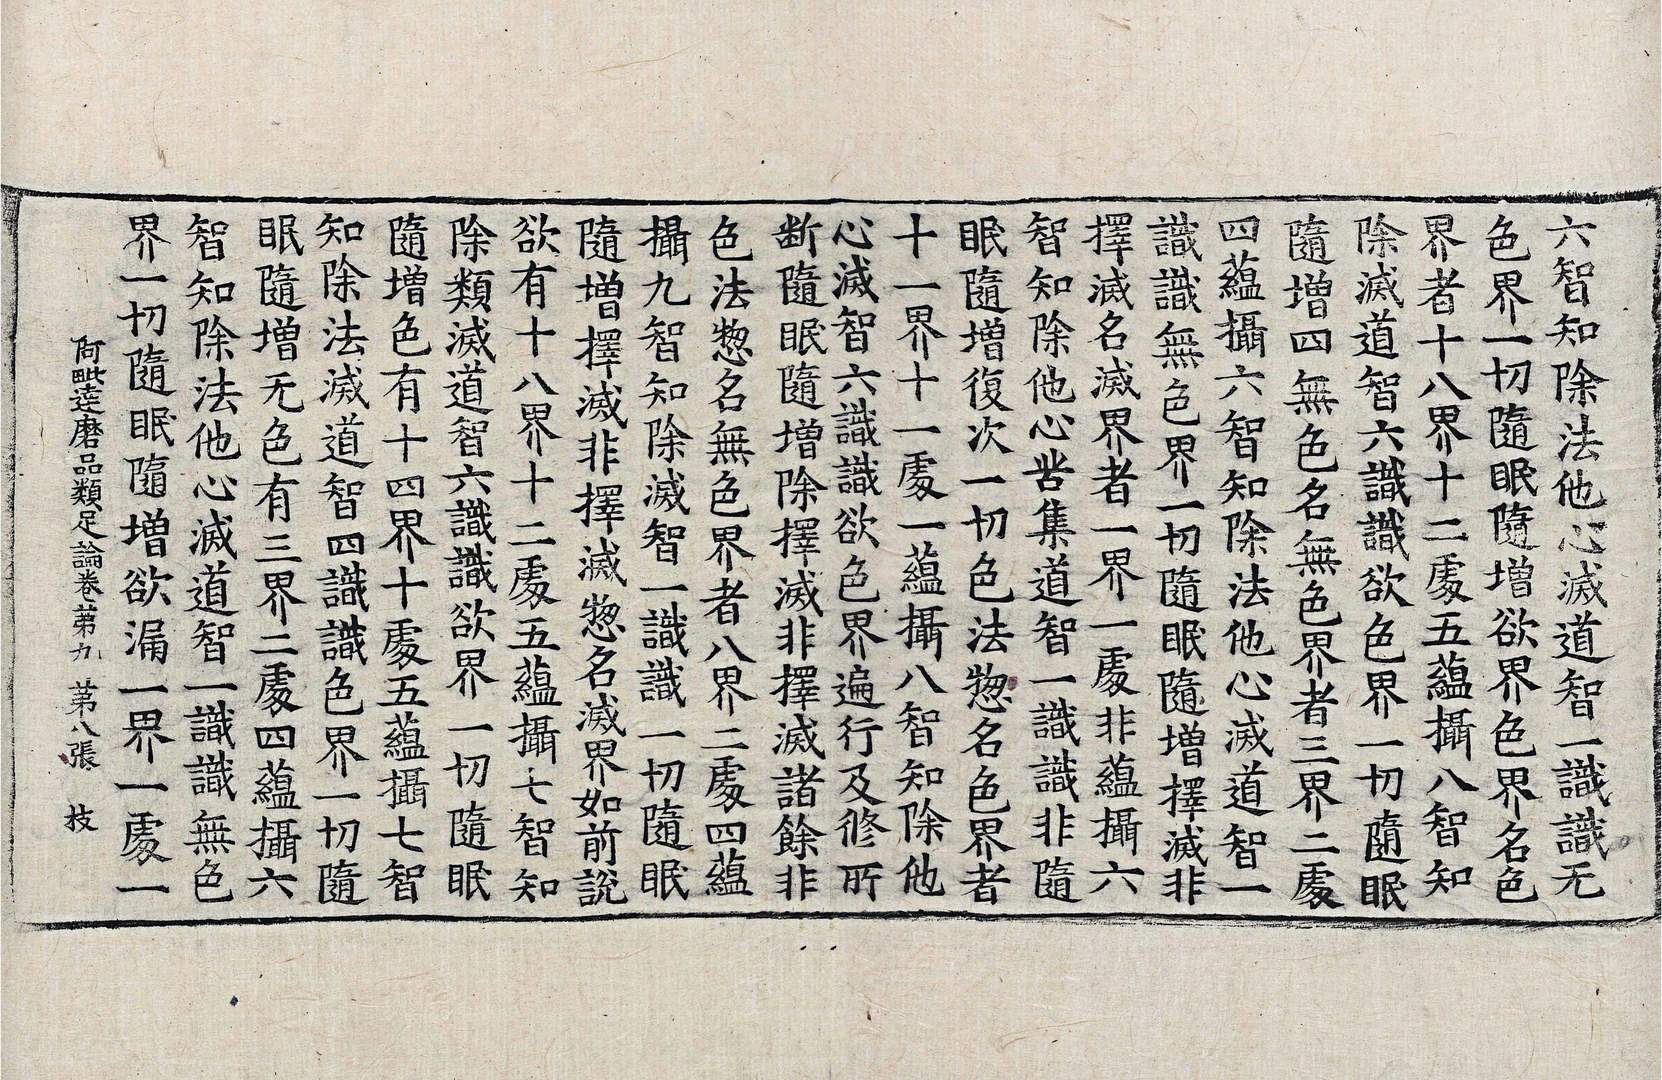 六智知除法他心滅道智一識識无
色界一切隨眠隨增欲界色界名色
界者十八界十二處五蘊攝八智知
除滅道智六識識欲色界一切隨眠
隨增四無色名無色界者三界二處
四蘊攝六智知除法他心滅道智一
識識無色界一切隨眠隨增擇滅非
擇滅名滅界者一界一處非蘊攝六
智知除他心苦集道智一識識非隨
眠隨增復次一切色法惣名色界者
十一界十一處一蘊攝八智知除他
心滅智六識識欲色界遍行及修所
断隨眠隨增除擇滅非擇滅諸餘非
色法惣名無色界者八界二處四蘊
攝九智知除滅智一識識一切隨眠
隨增擇滅非擇滅惣名滅界如前說
欲有十八界十二處五蘊攝七智知
除類滅道智六識識欲界一切隨眠
隨增色有十四界十處五蘊攝七智
知除法滅道智四識識色界一切隨
眠隨增无色有三界二處四蘊攝六
智知除法他心滅道智一識識無色
界一切隨眠隨增欲漏一界一處一
阿毗達磨品類足論卷苐九 苐八張 技